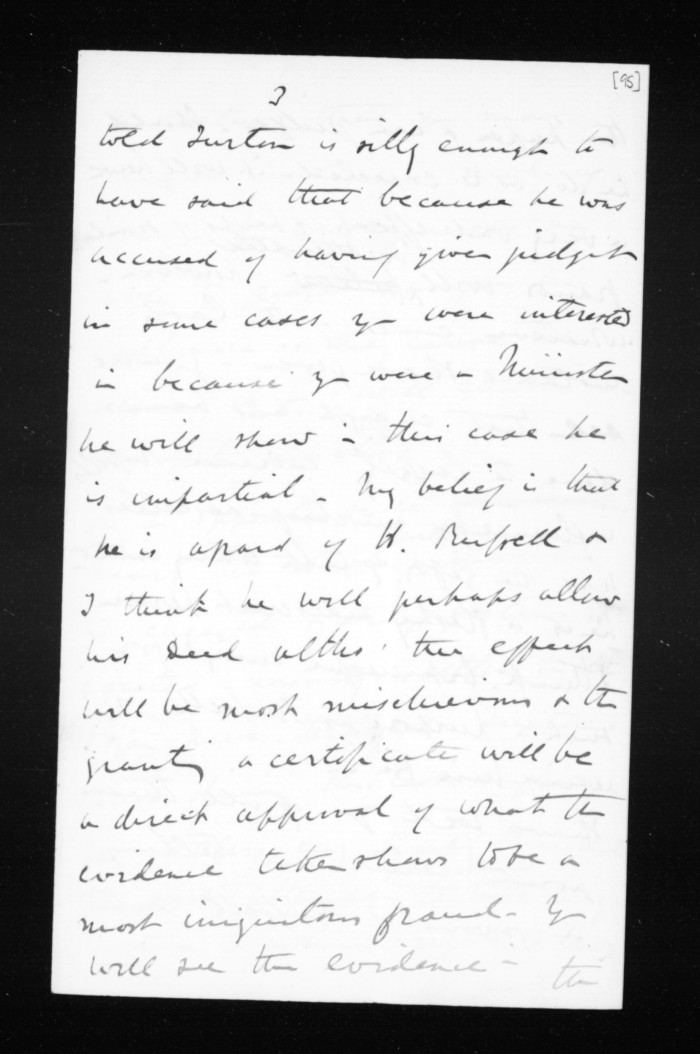 [95]
3
told Turton is silly enough to
have said that because he was
accused of having given judgt
in some cases yr were interested
in because yr were a Minister
he will show in this case he
is impartial - My belief is that
he is afraid of H. Russell &
I think he will perhaps allow
his Deed altho' the effect
will be most mischievous & the
granting a certificate will be
a direct approval of what the
evidence taken shows to be a
most iniquitous fraud - Yr
will see the evidence - the